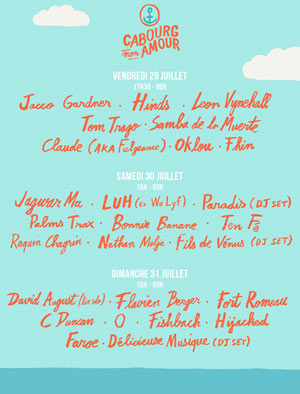 CABOURG
mon
AMOUR
VENDREDI 29 JUILLET
17H30 - 00H
Jacco Gardner · Hinds · Leon Vynehall
Tom Trago · Samba de la Muerte
Claude (AKA Fulgeance) · Oklou · Fhin
SAMEDI 30 JUILLET
15H - 00H
Jagwar Ma · LUH (ex Wu Lyf) · Paradis (DJ SET)
Palms Trax · Bonnie Banane · Ten F
Requin Chagrin · Nathan Melja · Fils de Vénus (DJ SET)
DIMANCHE 31 JUILLET
15H - 00H
David August (live solo) · Flavien Berger · Fort Romeau
C Duncan · O · Fishbach · Hijacked
Faroe · Délicieuse Musique (DJ SET)